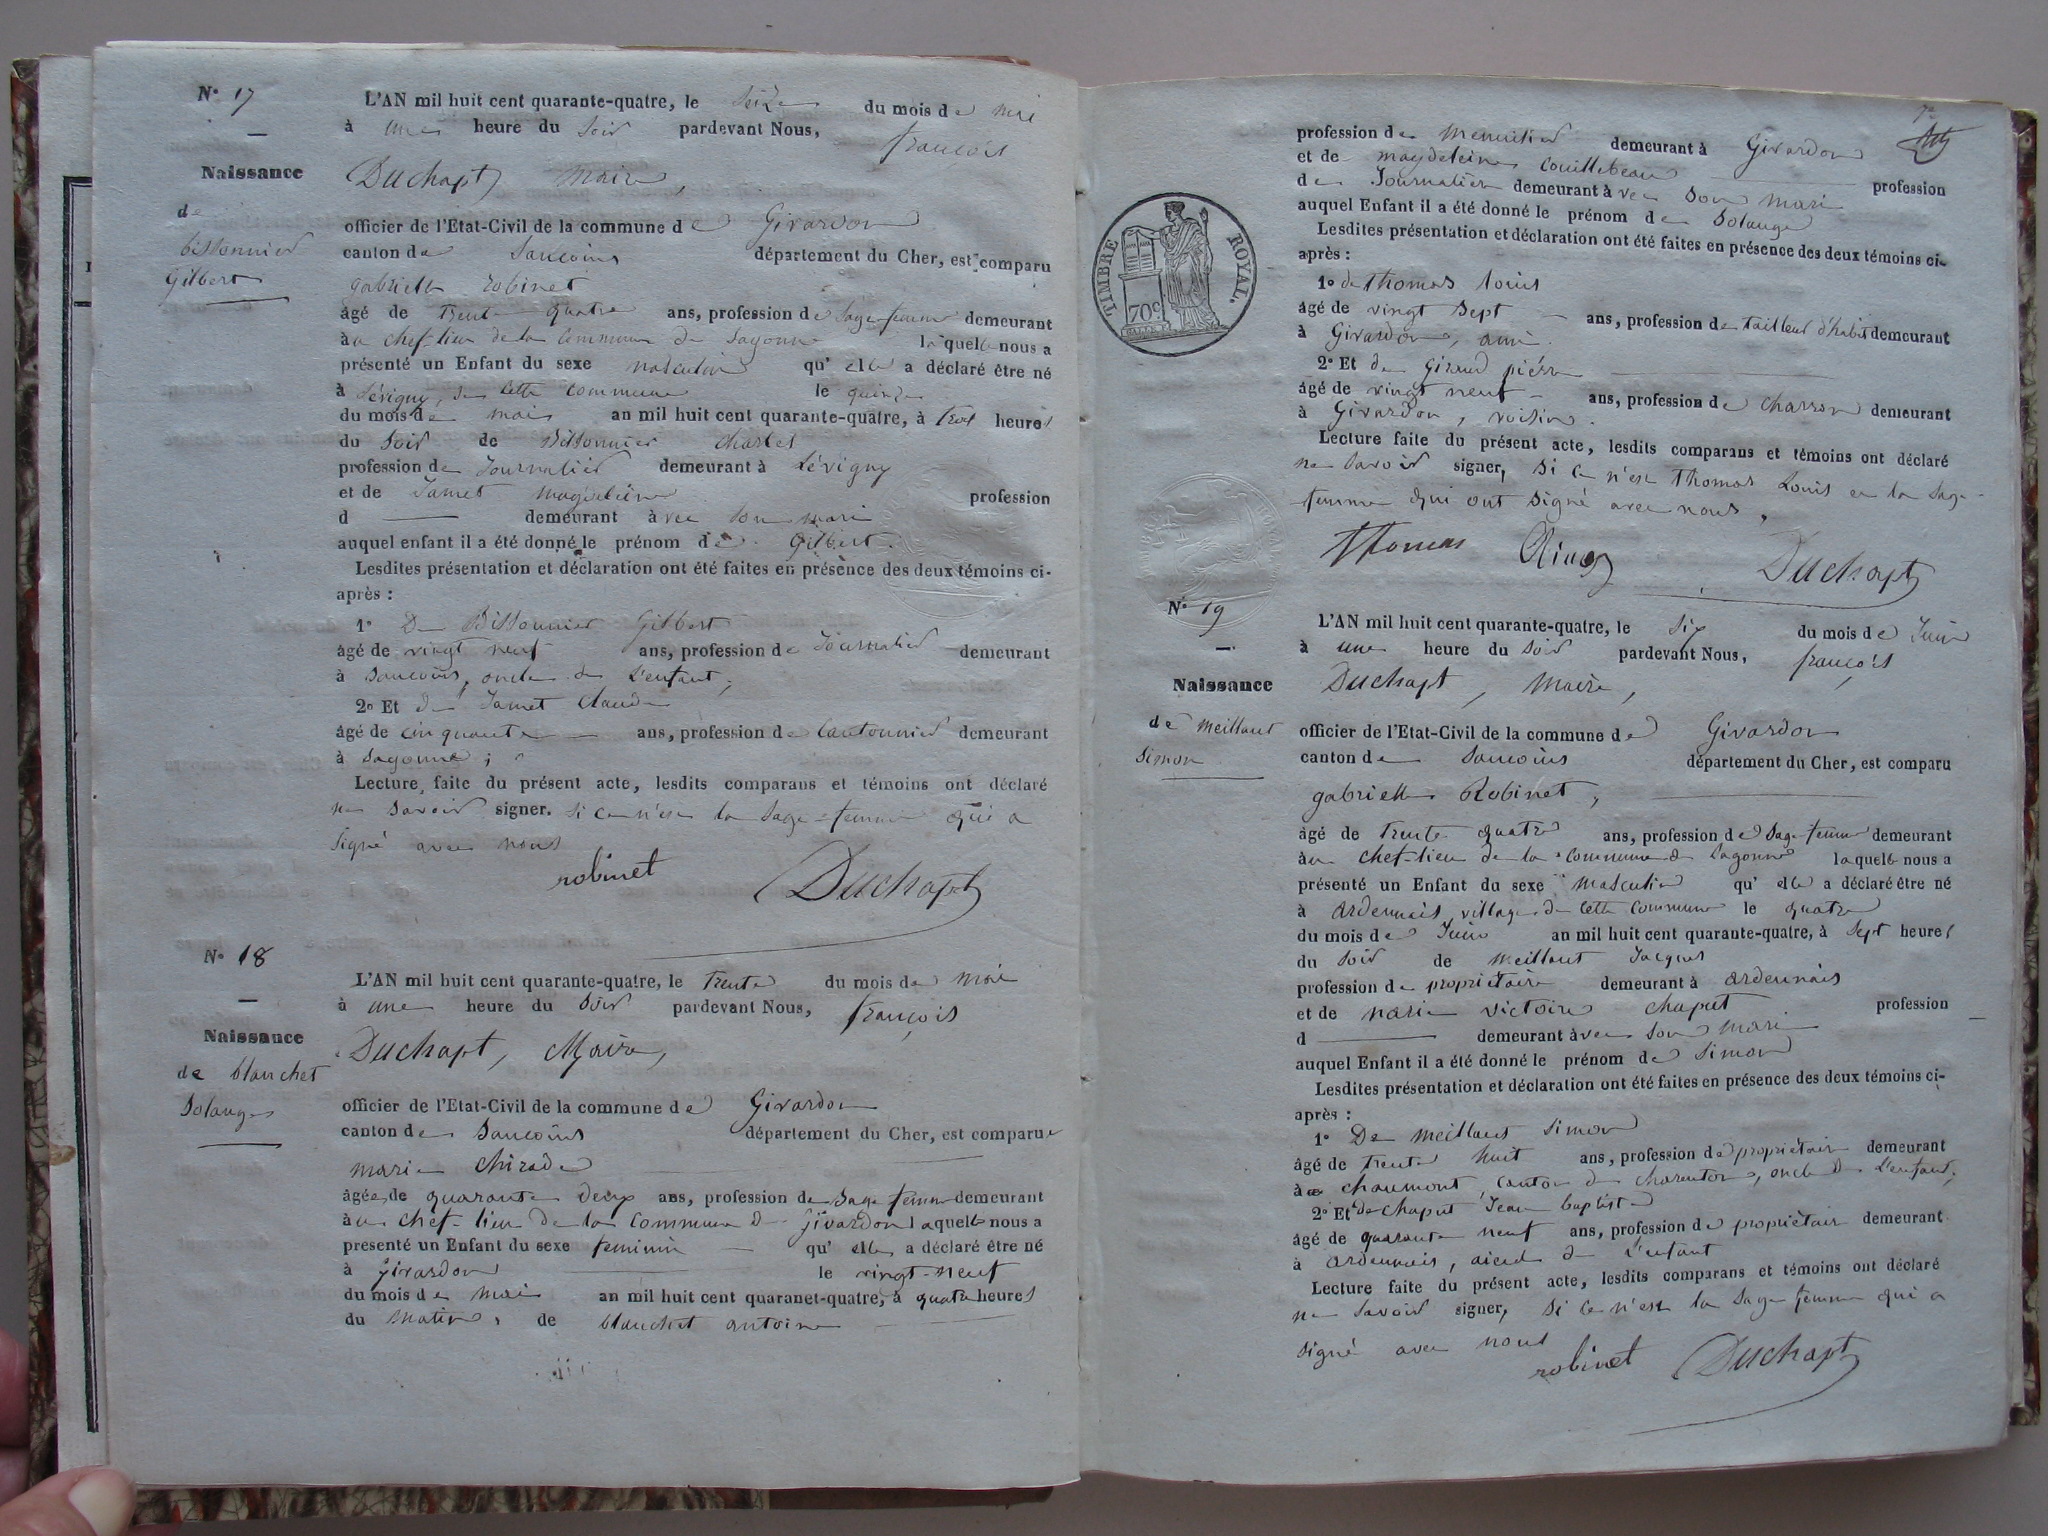 N° 17
L'AN mil huit cent quarante-quatre, le Seize du mois de mai
à une heure du Soir pardevant Nous, françois
Naissance
Duchapt Maire,
de
bissonnier
Gilbert
officier de l'Etat-Civil de la commune de Givardon
canton de Sancoins département du Cher, est comparu
gabrielle robinet
âgé de trente quatre ans, profession de Sage femme demeurant
à au chef-lieu de la Commune de Sagonne laquelle nous a
présenté un Enfant du sexe masculin qu'elle a déclaré être né
à Lévigny, de cette commune le quinze
du mois de mai an mil huit cent quarante-quatre, à trois heures
du Soir de Bissonnier Charles
profession de Journalier demeurant à Lévigny
et de Jamet magdeleine profession
d demeurant avec Son mari
auquel enfant il a été donné le prénom de Gilbert.
Lesdites présentation et déclaration ont été faites en présence des deux témoins ci-
après :
1° De Bissonnier Gilbert
âgé de vingt neuf ans, profession de Journalier demeurant
à Sancoins, oncle de L'enfant;
2° Et de Jamet Claude
âgé de cinquante ans, profession de Cantonnier demeurant
à Sagonne;
Lecture faite du présent acte, lesdits comparans et témoins ont déclaré
ne Savoir signer. Si ce n'est la Sage-femme qui a
Signé avec nous
robinet Duchapt
N° 18
L'AN mil huit cent quarante-quatre, le trente du mois de mai
à une heure du Soir pardevant Nous, françois
Naissance
Duchapt, Maire,
de blanchet
Solange
officier de l'Etat-Civil de la commune de Givardon
canton de Sancoins département du Cher, est comparue
marie Chirade
âgée de quarante deux ans, profession de Sage femme demeurant
à au chef-lieu de la Commune de Givardon laquelle nous a
presenté un Enfant du sexe feminin qu'elle a déclaré être né
à Givardon le vingt-neuf
du mois de mai an mil huit cent quaranet-quatre, à quatre heures
du Matin, de blanchet antoine
profession de menuisier demeurant à Givardon
et de magdeleine Couillebeau profession
de Journalier demeurant avec Son mari
auquel Enfant il a été donné le prénom de Solange
Lesdites présentation et déclaration ont été faites en présence des deux témoins ci-
après :
TIMBRE ROYAL.
70c
1° de Thomas Louis
âgé de vingt Sept ans, profession de tailleur d'habit demeurant
à Givardon, ami.
2° Et de Giraud piérre
âgé de vingt neuf ans, profession de charron demeurant
à Givardon, voisin.
Lecture faite du présent acte, lesdits comparans et témoins ont déclaré
ne Savoir signer, Si ce n'est Thomas Louis et la Sage-
femme qui ont Signé avec nous,
Thomas Duchapt
N° 19
L'AN mil huit cent quarante-quatre, le Six du mois de Juin
à une heure du Soir pardevant Nous, françois
Naissance
Duchapt, Maire,
de Meillant
Simon
officier de l'Etat-Civil de la commune de Givardon
canton de Sancoins département du Cher, est comparu
gabrielle Robinet,
âgé de trente quatre ans, profession de Sage femme demeurant
à au chef-lieu de la commune de Sagonne laquelle nous a
présenté un Enfant du sexe Masculin qu'elle a déclaré être né
à ardennais, village de cette commune le quatre
du mois de Juin an mil huit cent quarante-quatre, à Sept heures
du Soir de Meillant Jacques
profession de propriétaire demeurant à ardennais
et de marie victoire chaput profession
d demeurant avec Son Mari
auquel Enfant il a été donné le prénom de Simon
Lesdites présentation et déclaration ont été faites en présence des deux témoins ci-
après :
1° De Meillant Simon
âgé de trente huit ans, profession de propriétaire demeurant
à chaumont, canton de Charenton, oncle de L'enfant;
2° Et de chaput Jean baptiste
âgé de quarante neuf ans, profession de propriétaire demeurant
à ardennais, aieul de L'enfant
Lecture faite du présent acte, lesdits comparans et témoins ont déclaré
ne Savoir signer, Si ce n'est la Sage femme qui a
Signé avec nous
robinet Duchapt